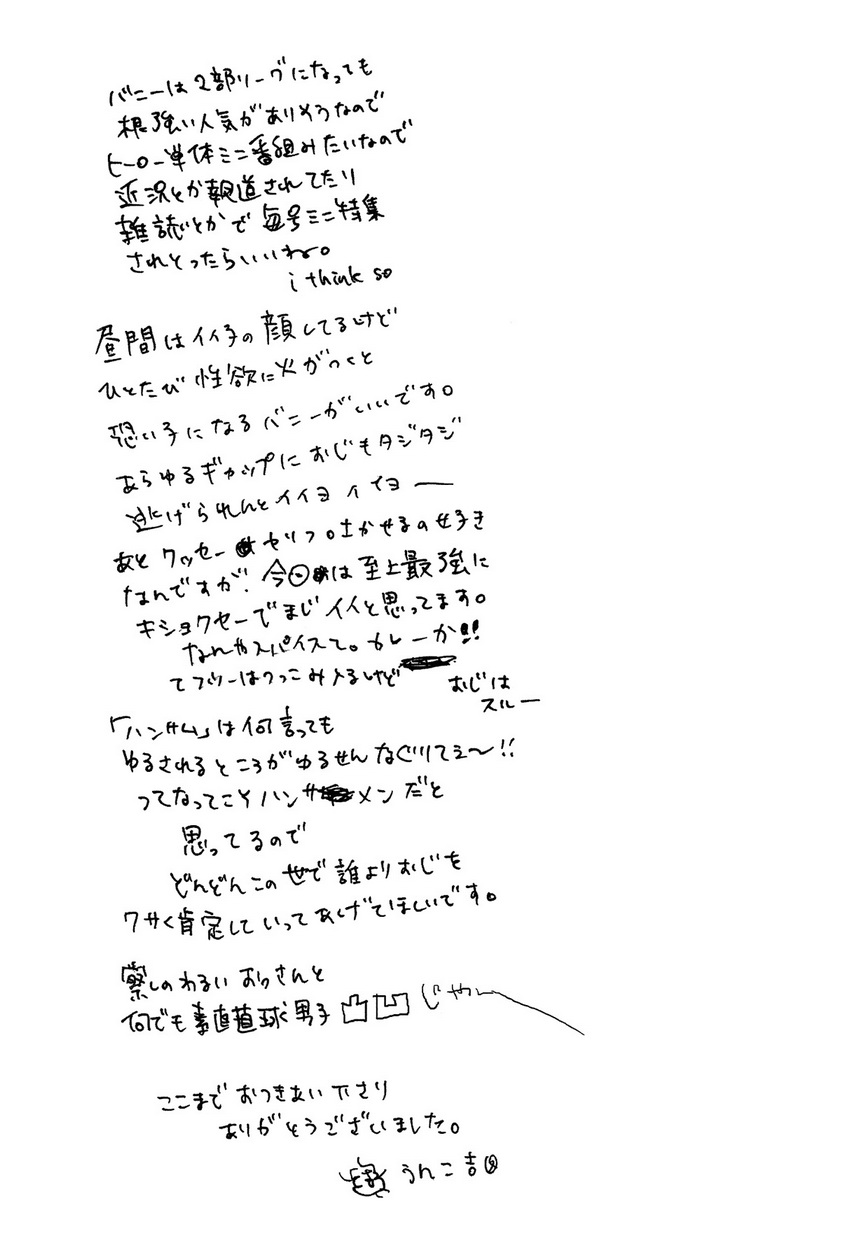 バニーは2部リーグになっても
根強い人気がありそうなので
ヒーロー単体ミニ番組みたいなので
近況とか報道されてたり
雑誌とかで毎号ミニ特集
されとったらいいね。
i think so
昼間はイイ子の顔してるけど
ひとたび性欲に火がつくと
恐い子になるバニーがいいです。
あらゆるギャップにおじもタジタジ
逃げられんとイイヨイイヨー
あとクッセーセリフ吐かせるの好き
なんですが、今回は至上最強に
キショクセーでまじイイと思ってます。
なんやスパイスて。カレーか!!
てフツーはつっこみ入るけど
おじは
スルー
「ハンサム」は何言っても
ゆるされるところがゆるせんなぐりてぇ〜!!
ってなってこそハンサメンだと
思ってるので
どんどんこの世で誰よりおじを
クサく肯定していってあげてほしいです。
察しのわるいおっさんと
何でも素直直球男子凸凹じゃー
ここまでおつきあい下さり
ありがとうございました。
うんこ吉